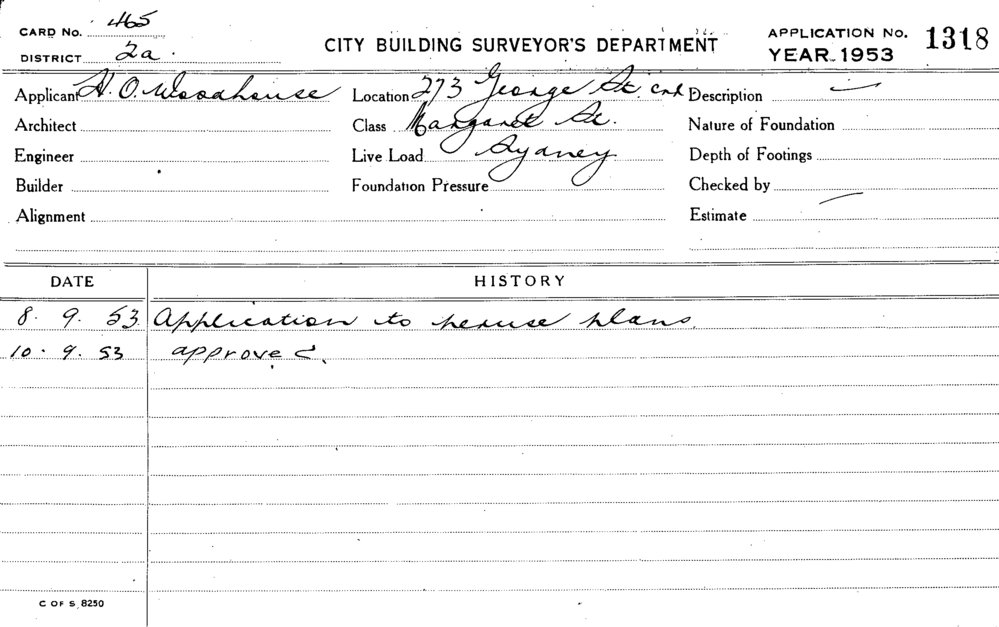 CARD No. 465
DISTRICT 2a.
CITY BUILDING SURVEYOR'S DEPARTMENT
APPLICATION No. 1318
YEAR 1953
Applicant H. O. Woodhouse Location 273 George St. cnr Description
Architect Class Margaret St. Nature of Foundation
Engineer Live Load Sydney Depth of Footings
Builder Foundation Pressure Checked by
Alignment Estimate
DATE HISTORY
8. 9. 53 Application to peruse plans.
10. 9. 53 approved.
C OF S 8250